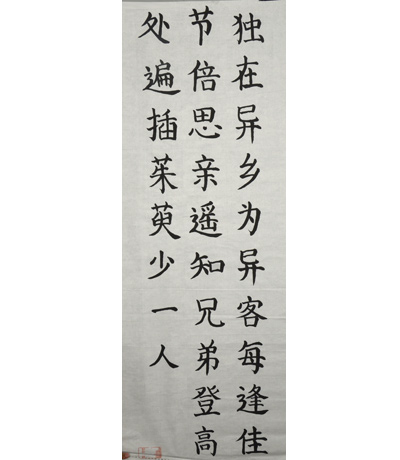 独在异乡为异客每逢佳
节倍思亲遥知兄弟登高
处遍插茱萸少一人